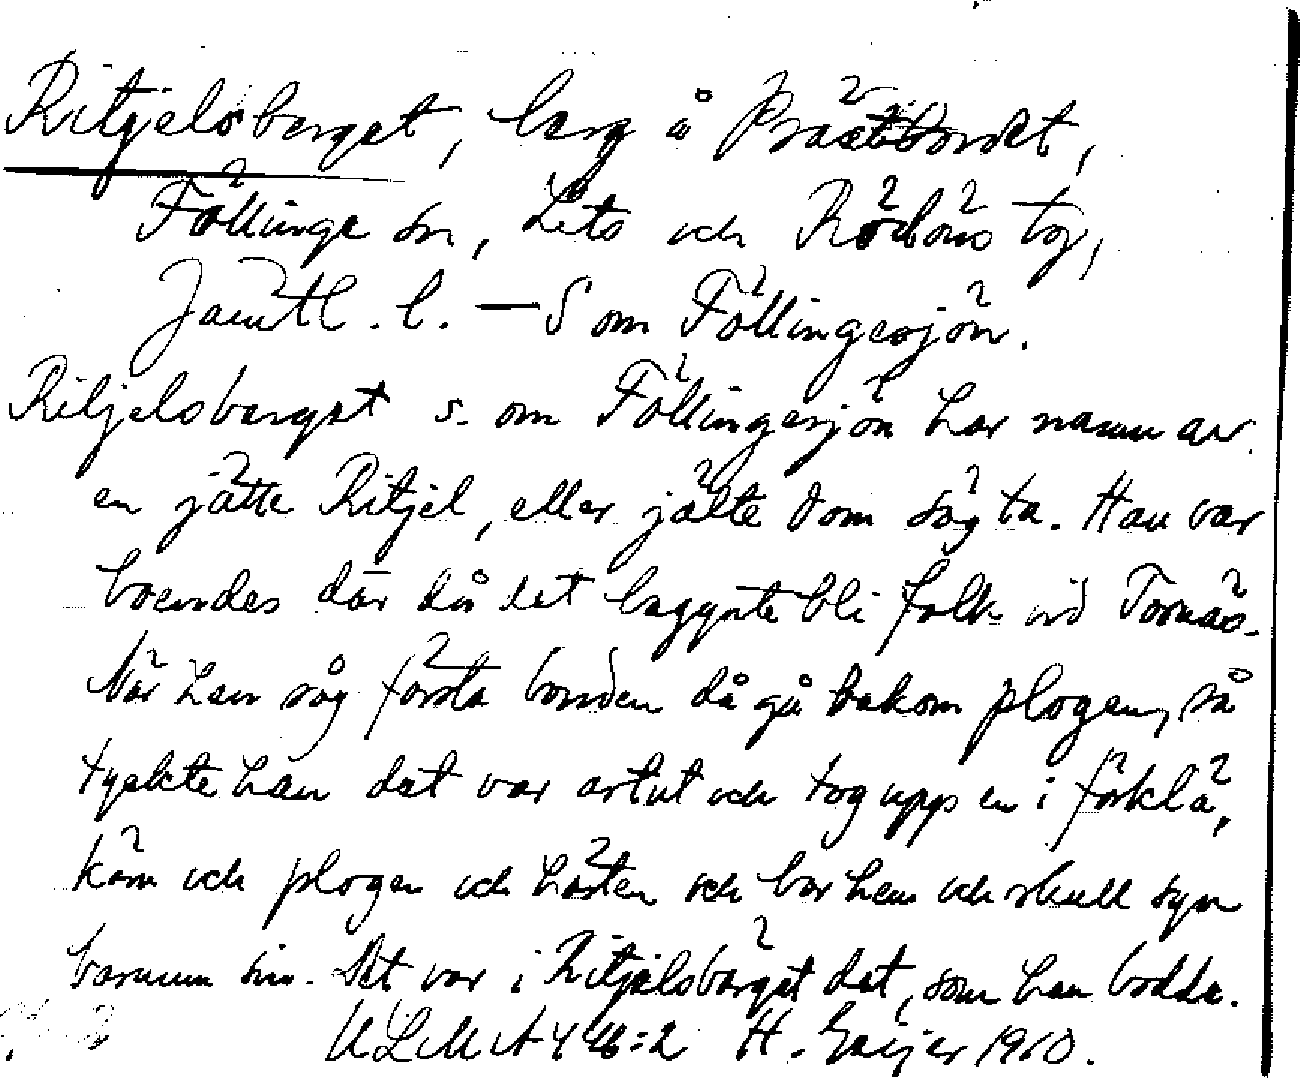 Ritjelsberget, berg å Prästbordet,
Föllinge sn, Lits och Rödöns tg,
Jämtl. l. — S om Föllingesjön.
Ritjelsberget s. om Föllingesjön har namn av
en jätte Ritjel, eller jälte dom säg ta. Han var
boendes där då det begynte bli folk vid Tornäs.
När han såg första bonden då gå bakom plogen, så
tyckte han det var artut och tog upp en i förklä,
kärn och plogen och hästen och bar hem och skull syn
barnum sin. Det var i Ritjelsbärget det, som han bodde.
ULMA 446:2 H. Geijer 1910.